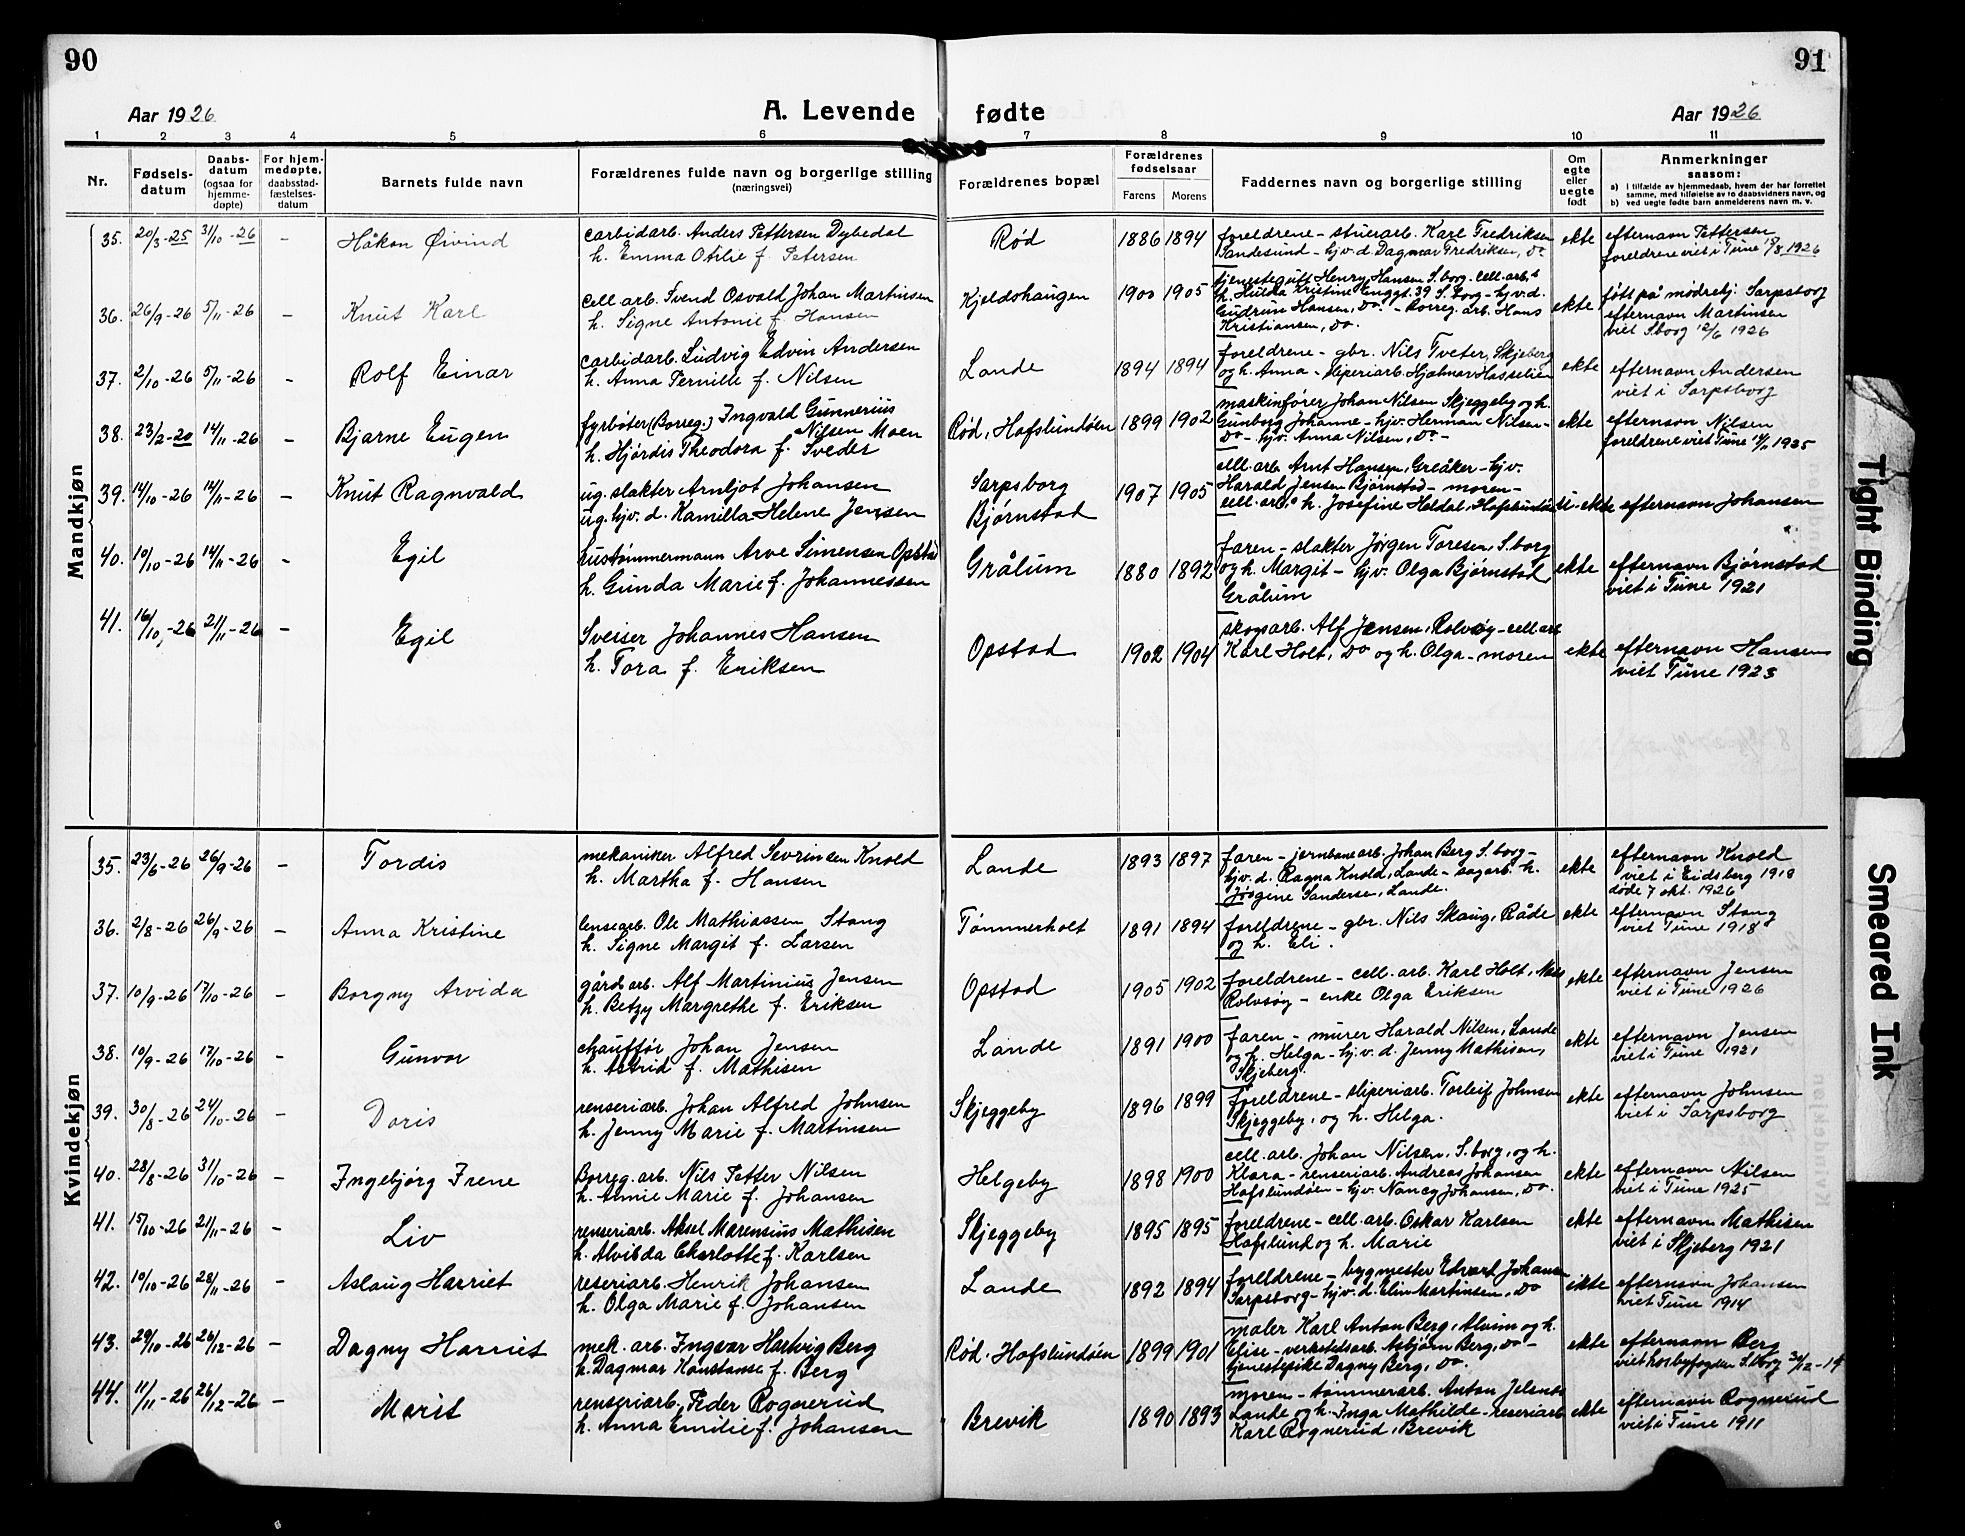 90
91
Aar 1926
A. Levende
fødte
Aar 1926
1 2 3 4 5 6 7 8 9 10 11
Nr.
Fødsels-
datum
Daabs-
datum
(ogsaa for
hjemme-
døpte)
For hjem-
medøpte,
daabsstad-
fæstelses-
datum
Barnets fulde navn
Forældrenes fulde navn og borgerlige stilling
(næringsvei)
Forældrenes bopæl
Forældrenes
fødselsaar
Farens Morens
Faddernes navn og borgerlige stilling
Om
egte
eller
uegte
født
Anmerkninger
saasom:
a) i tilfælde av hjemmedaab, hvem der har forrettet
samme, med tilføielse av to daabsvidners navn, og
b) ved uegte fødte barn anmelderens navn m. v.
Mandkjøn
35. 20/3-25 31/10-26 – Håkon Øivind
carbidarb. Anders Pettersen Dybedal
h. Emma Otilie f. Petersen
Rød 1886 1894
foreldrene – stuerarb. Karl Fredriksen
Sandesund – hjv. d. Dagmar Fredriksen, do
ekte
efternavn Pettersen
foreldrene viet i Tune 1926
36. 26/9-26 5/11-26 – Knut Karl
cell. arb. Svend Osvald Johan Martinsen
h. Signe Antonie f. Hansen
Kjeldshaugen 1900 1905
tjenestegutt Henry Hansen S.borg. cell. arb.s
h. Hulda Kristine Enggt. 39 S.borg – hjv. d.
Gudrun Hansen, Do. – Borreg. arb. Hans
Kristiansen, do.
ekte
født på mødrehj. Sarpsborg
efternavn Martinsen
viet S.borg 12/6 1926
37. 2/10-26 5/11-26 – Rolf Einar
carbidarb. Ludvig Edvin Andersen
h. Anna Pernille f. Nilsen
Lande 1894 1894
foreldrene – gbr. Nils Tveter, Skjeberg
og h. Anna – sliperiarb. Hjalmar Hasselien
ekte
efternavn Andersen
viet i Sarpsborg
38. 23/2-20 14/11-26 – Bjarne Eugen
fyrbøter (Borreg.) Ingvald Gunnerius
Nilsen Moen
h. Hjørdis Theodora f. Sveder
Rød, Hafslundøen 1899 1902
maskinfører Johan Nilsen Skjeggeby og h.
Gunborg Johanne – hjv. Herman Nilsen –
Do – hjv. Anna Nilsen, Do –
ekte
efternavn Nilsen
foreldrene viet Tune 1925
39. 14/10-26 14/11-26 – Knut Ragnvald
ug. slakter Arnljot Johansen
ug. hjv. d. Kamilla Helene Jensen
Sarpsborg
Bjørnstad
1907 1905
cell. arb. Arnt Hansen, Greåker – hjv.
Harald Jensen Bjørnstad – moren –
cell. arb.s h. Josefine Heldal, Hafslundsøen
u-ekte efternavn Johansen
40. 10/10-26 14/11-26 – Egil
hustømmermann Arve Simensen Opstad
h. Gunda Marie f. Johannessen
Grålum 1880 1892
faren – slakter Jørgen Toresen, S.borg
og h. Margit – hjv. Olga Bjørnstad
Grålum
ekte
efternavn Bjørnstad
viet i Tune 1921
41. 16/10-26 21/11-26 – Egil
Sveiser Johannes Hansen
h. Tora f. Eriksen
Opstad 1902 1904
skogsarb. Alf Jensen, Rolvsøy – cell. arb
Karl Holt, do og h. Olga – moren
ekte
efternavn Hansen
viet Tune 1923
Kvindekjøn
35. 23/6-26 26/9-26 – Tordis
mekaniker Alfred Sevrinsen Knold
h. Martha f. Hansen
Lande 1893 1897
faren – jernbanearb. Johan Berg S.borg –
hjv. d. Ragna Knold, Lande – sagarb. h.
Jørgine Sandersen, Lande.
ekte
efternavn Knold
viet i Eidsberg 1918
døde 7 okt. 1926
36. 2/8-26 26/9-26 – Anna Kristine
lensearb. Ole Mathiassen Stang
h. Signe Margit f. Larsen
Tømmerholt 1891 1894
foreldrene – gbr. Nils Skaug, Råde
og h. Eli.
ekte
efternavn Stang
viet Tune 1918
37. 10/9-26 17/10-26 – Borgny Arvida
gårdsarb. Alf Martinius Jensen
h. Betzy Margrethe f. Eriksen
Opstad 1905 1902
foreldrene – cell. arb. Karl Holt,
Rolvsøy – enke Olga Eriksen
ekte
efternavn Jensen
viet i Tune 1926
38. 10/9-26 17/10-26 – Gunvor
chauffør Johan Jensen
h. Astrid f. Mathisen
Lande 1891 1900
faren – murer Harald Nilsen, Lande
og h. Helga – hjv. d. Jenny Mathisen,
Skjeberg
ekte
efternavn Jensen
viet i Tune 1921
39. 30/8-26 24/10-26 – Doris
renseriarb. Johan Alfred Johnsen
h. Jenny Marie f. Martinsen
Skjeggeby 1896 1899
foreldrene – sliperiarb. Torleif Johnsen
Skjeggeby, og h. Helga.
ekte
efternavn Johnsen
viet i Sarpsborg
40. 28/8-26 31/10-26 – Ingebjørg Irene
Borreg. arb. Nils Petter Nilsen
h. Annie Marie f. Johansen
Helgeby 1898 1900
cell. arb. Johan Nilsen, S.borg, og h.
Klara – renseriarb. Andreas Johansen
Hafslundøen – hjv. Nancy Johansen, do.
ekte
efternavn Nilsen
viet i Tune 1925
41. 15/10-26 21/11-26 – Liv
renseriarb. Aksel Marensius Mathisen
h. Alvilda Charlotte f. Karlsen
Skjeggeby 1895 1895
foreldrene – cell. arb. Oskar Karlsen
Hafslund og h. Marie
ekte
efternavn Mathisen
viet i Skjeberg 1921
42. 10/10-26 28/11-26 – Aslaug Harriet
reseriarb. Henrik Johansen
h. Olga Marie f. Johansen
Lande 1892 1894
foreldrene – bygmester Edvard Johansen
Sarpsborg – hjv. d. Elin Martinsen, Do
ekte
efternavn Johansen
viet Tune 1914
43. 29/10-26 26/12-26 – Dagny Harriet
mek. arb. Ingvar Hartvig Berg
h. Dagmar Konstanse f. Berg
Rød. Hafslundøen 1899 1901
maler Karl Anton Berg, Alvim og h.
Elise – verkstedsarb. Asbjørn Berg, do –
tjenestepike Dagny Berg, do.
ekte
efternavn Berg
viet hos byfogden S.borg
44. 11/11-26 26/12-26 – Marit
renseriarb. Peder Rognerud
h. Anna Emilie f. Johansen
Brevik 1890 1893
moren – tømmerarb. Anton Jelsnes
Lande og h. Inga Mathilde – reseriarb
Karl Rognerud, Brevik
ekte
efternavn Rognerud
viet i Tune 1911
Tight Binding
Smeared Ink